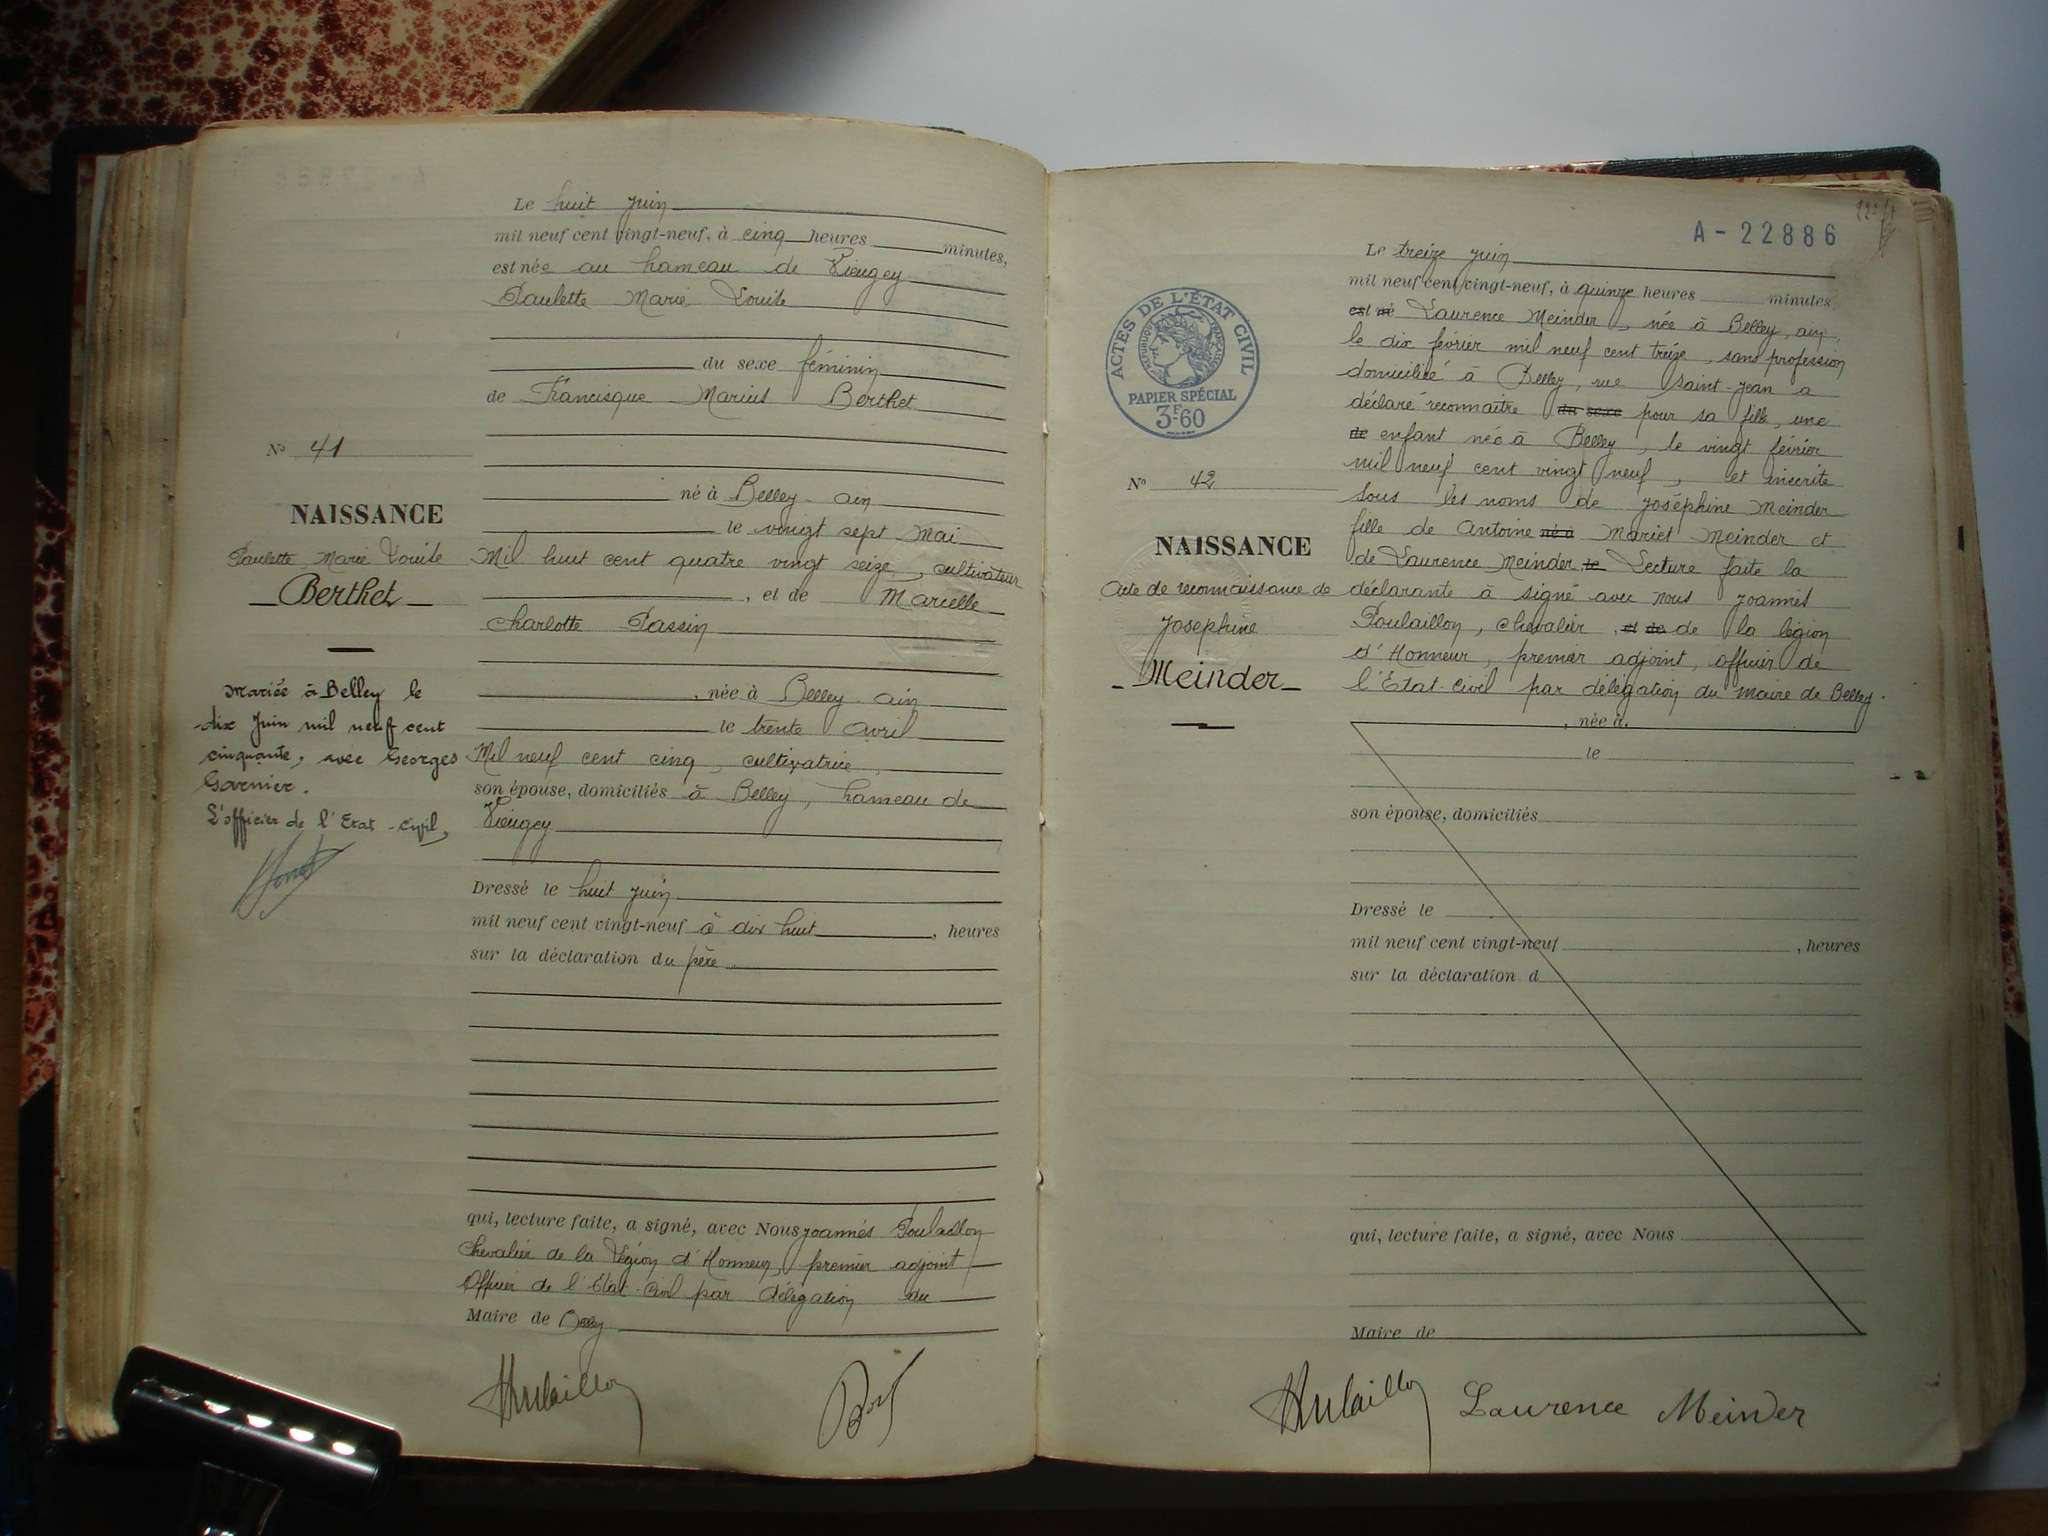 Le huit juin
mil neuf cent vingt-neuf, à cinq heures minutes,
est née au hameau de
Paulette Marie Louise
du sexe féminin
de Francisque Marius Berthet
né à Belley ain
le vingt sept Mai
Mil huit cent quatre vingt seize, cultivateur
, et de Marcelle
Charlotte Passin
, née à Belley ain
le trente avril
Mil neuf cent cinq, cultivatrice,
son épouse, domiciliés à Belley, hameau de
Dressé le huit juin
mil neuf cent vingt-neuf à dix huit , heures
sur la déclaration du père.
qui, lecture faite, a signé, avec Nous joannès Poulaillon
Chevalier de la Légion d'Honneur, premier adjoint
Officier de l'Etat-Civil par délégation du
Maire de Belley
No 41
NAISSANCE
Paulette Marie Louise
Berthet
Mariée à Belley le
dix Juin mil neuf cent
cinquante, avec Georges
Garnier.
L'officier de l'Etat-civil,
A-22886
ACTES DE L'ÉTAT CIVIL
RÉPUBLIQUE FRANÇAISE
PAPIER SPÉCIAL
3F60
No 42
NAISSANCE
Acte de reconnaissance de
Josephine
Meinder
Le treize juin
mil neuf cent vingt-neuf, à quinze heures minutes
est né Laurence Meinder, née à Belley, ain,
le dix février mil neuf cent treize, sans profession
domiciliée à Belley, rue Saint-Jean a
déclaré reconnaitre du sexe pour sa fille, une
de enfant née à Belley, le vingt février
mil neuf cent vingt neuf, et inscrite
sous les noms de joséphine Meinder
fille de Antoine né à Mariet Meinder et
de Laurence Meinder, le Lecture faite la
déclarante à signé avec nous joannès
Poulaillon, chevalier, et de de la légion
d'Honneur, premier adjoint, officier de
l'Etat-Civil par délégation du Maire de Belley.
, née à
le
son épouse, domiciliés
Dressé le
mil neuf cent vingt-neuf , heures
sur la déclaration d
qui, lecture faite, a signé, avec Nous
Maire de
Laurence Meinder